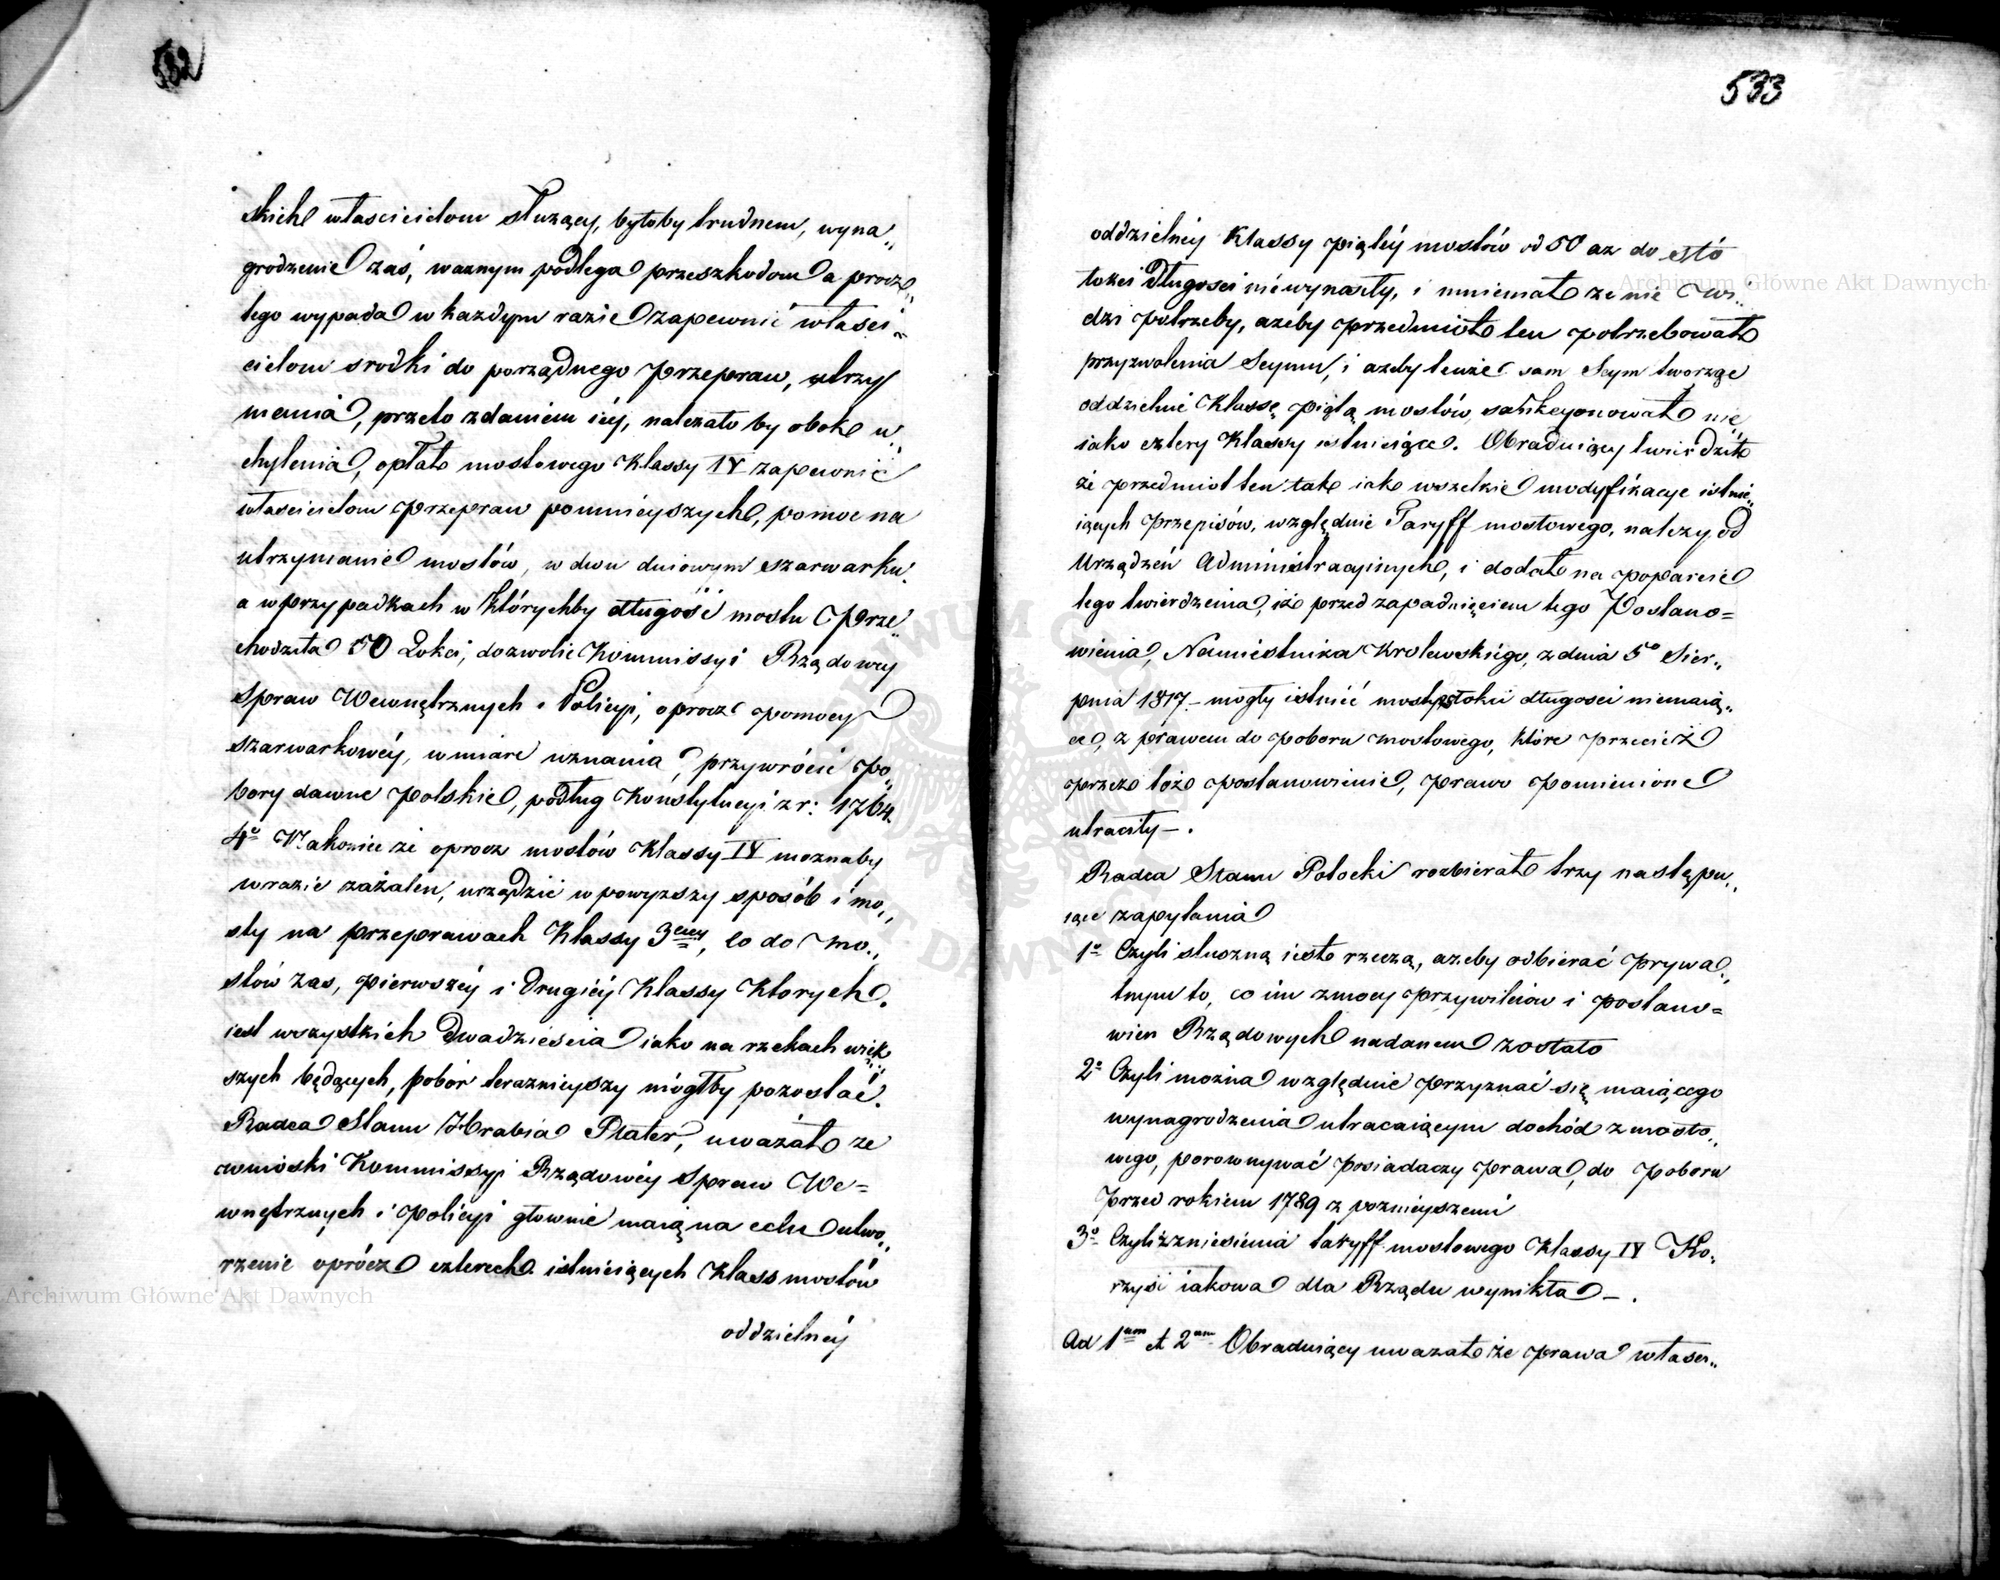 532
skich właścicielom służący, byłoby trudnem, wyna„
grodzenie zaś, ważnym podlega przeszkodom a procz
tego wypada w każdym razie zapewnić właści„
cielom srodki do porządnego przepraw, utrzy
mania, przeto zdaniem iéy, należało by obok u„
chylenia, opłat mostowego Klassy IV zapewnić
właścicielom przepraw pomnieyszych, pomoc na
utrzymanie mostów, w dwu dniowym szarwarku.
a w przypadkach w którychby długość mostu prze„
chodziła 50 Łokci, dozwolić Kommissyi Rządowey
Spraw Wewnętrznych i Policyi, oprocz pomocy
szarwarkowéy, w miarę uznania, przywrócić po„
bory dawne Polskie, podług Konstytucyi z r: 1764.
4° Nakoniec że oprocz mostów Klassy IV moznaby
w razie zażaleń, urządzić w powyższy sposób i mo„
sty na przeprawach Klassy 3ciey, co do mo„
stów zas, pierwszéy i drugiéy Klassy których
iest wszystkich dwadzieścia iako na rzekach więk
szych będących, pobór teraznieyszy mógłby pozostać.
Radca Stanu Hrabia Plater, uważał ze
wnioski Kommissyi Rządowéy Spraw We=
wnętrznych i Policyi głownie maią na celu utwo„
rzenie oprócz czterech istnieiących Klass mostów
oddzielnéy
533
oddzielnéy Klassy piątéy mostów od 50 aż do stó
łokci długości niewynosiły, i mniemał że nie wi„
dzi potrzeby, ażeby przedmiot ten potrzebował
przyzwolenia Seymu, i azeby tenże sam Seym tworząc
oddzielnie Klassę piątą mostów, sankcyonował nię
iako cztery Klassy istnieiące. Obraduiący twierdził
że przedmiot ten tak iak wszelkie modyfikacye istnie„
iących przepisów, względnie Taryff mostowego, należy od
Urządzeń Administracyinych, i dodał na poparcie
tego twierdzenia, iż przed zapadnięciem tego Postano=
wienia, Namiestnika Krolewskiego, z dnia 5° Sier„
pnia 1817 – mogły istnieć mosty stołokci długości niemaią„
ce, z prawem do poboru mostowego, które przecież
przez toż postanowienie, prawo pomienione
utraciły – .
Radca Stanu Potocki rozbierał trzy następu„
iące zapytania
1° Czyli słuszną iest rzeczą, ażeby odbierać prywa„
tnym to, co im z mocy przywileiów i postano=
wien Rządowych nadanem zostało
2° Czyli można względnie przyznać się maiącego
wynagrodzenia utracaiącym dochód z mosto„
wego, porownywać posiadaczy prawa, do poboru
przed rokiem 1789 z poznieyszemi
3° Czyli z zniesienia taryff mostowego Klassy IV Ko„
rzyść iakowa dla Rządu wynikła – .
Ad 1um et 2um Obraduiący uwazał że prawa własci„
Archiwum Główne Akt Dawnych
Archiwum Główne Akt Dawnych
ARCHIWUM GŁÓWNE AKT DAWNYCH